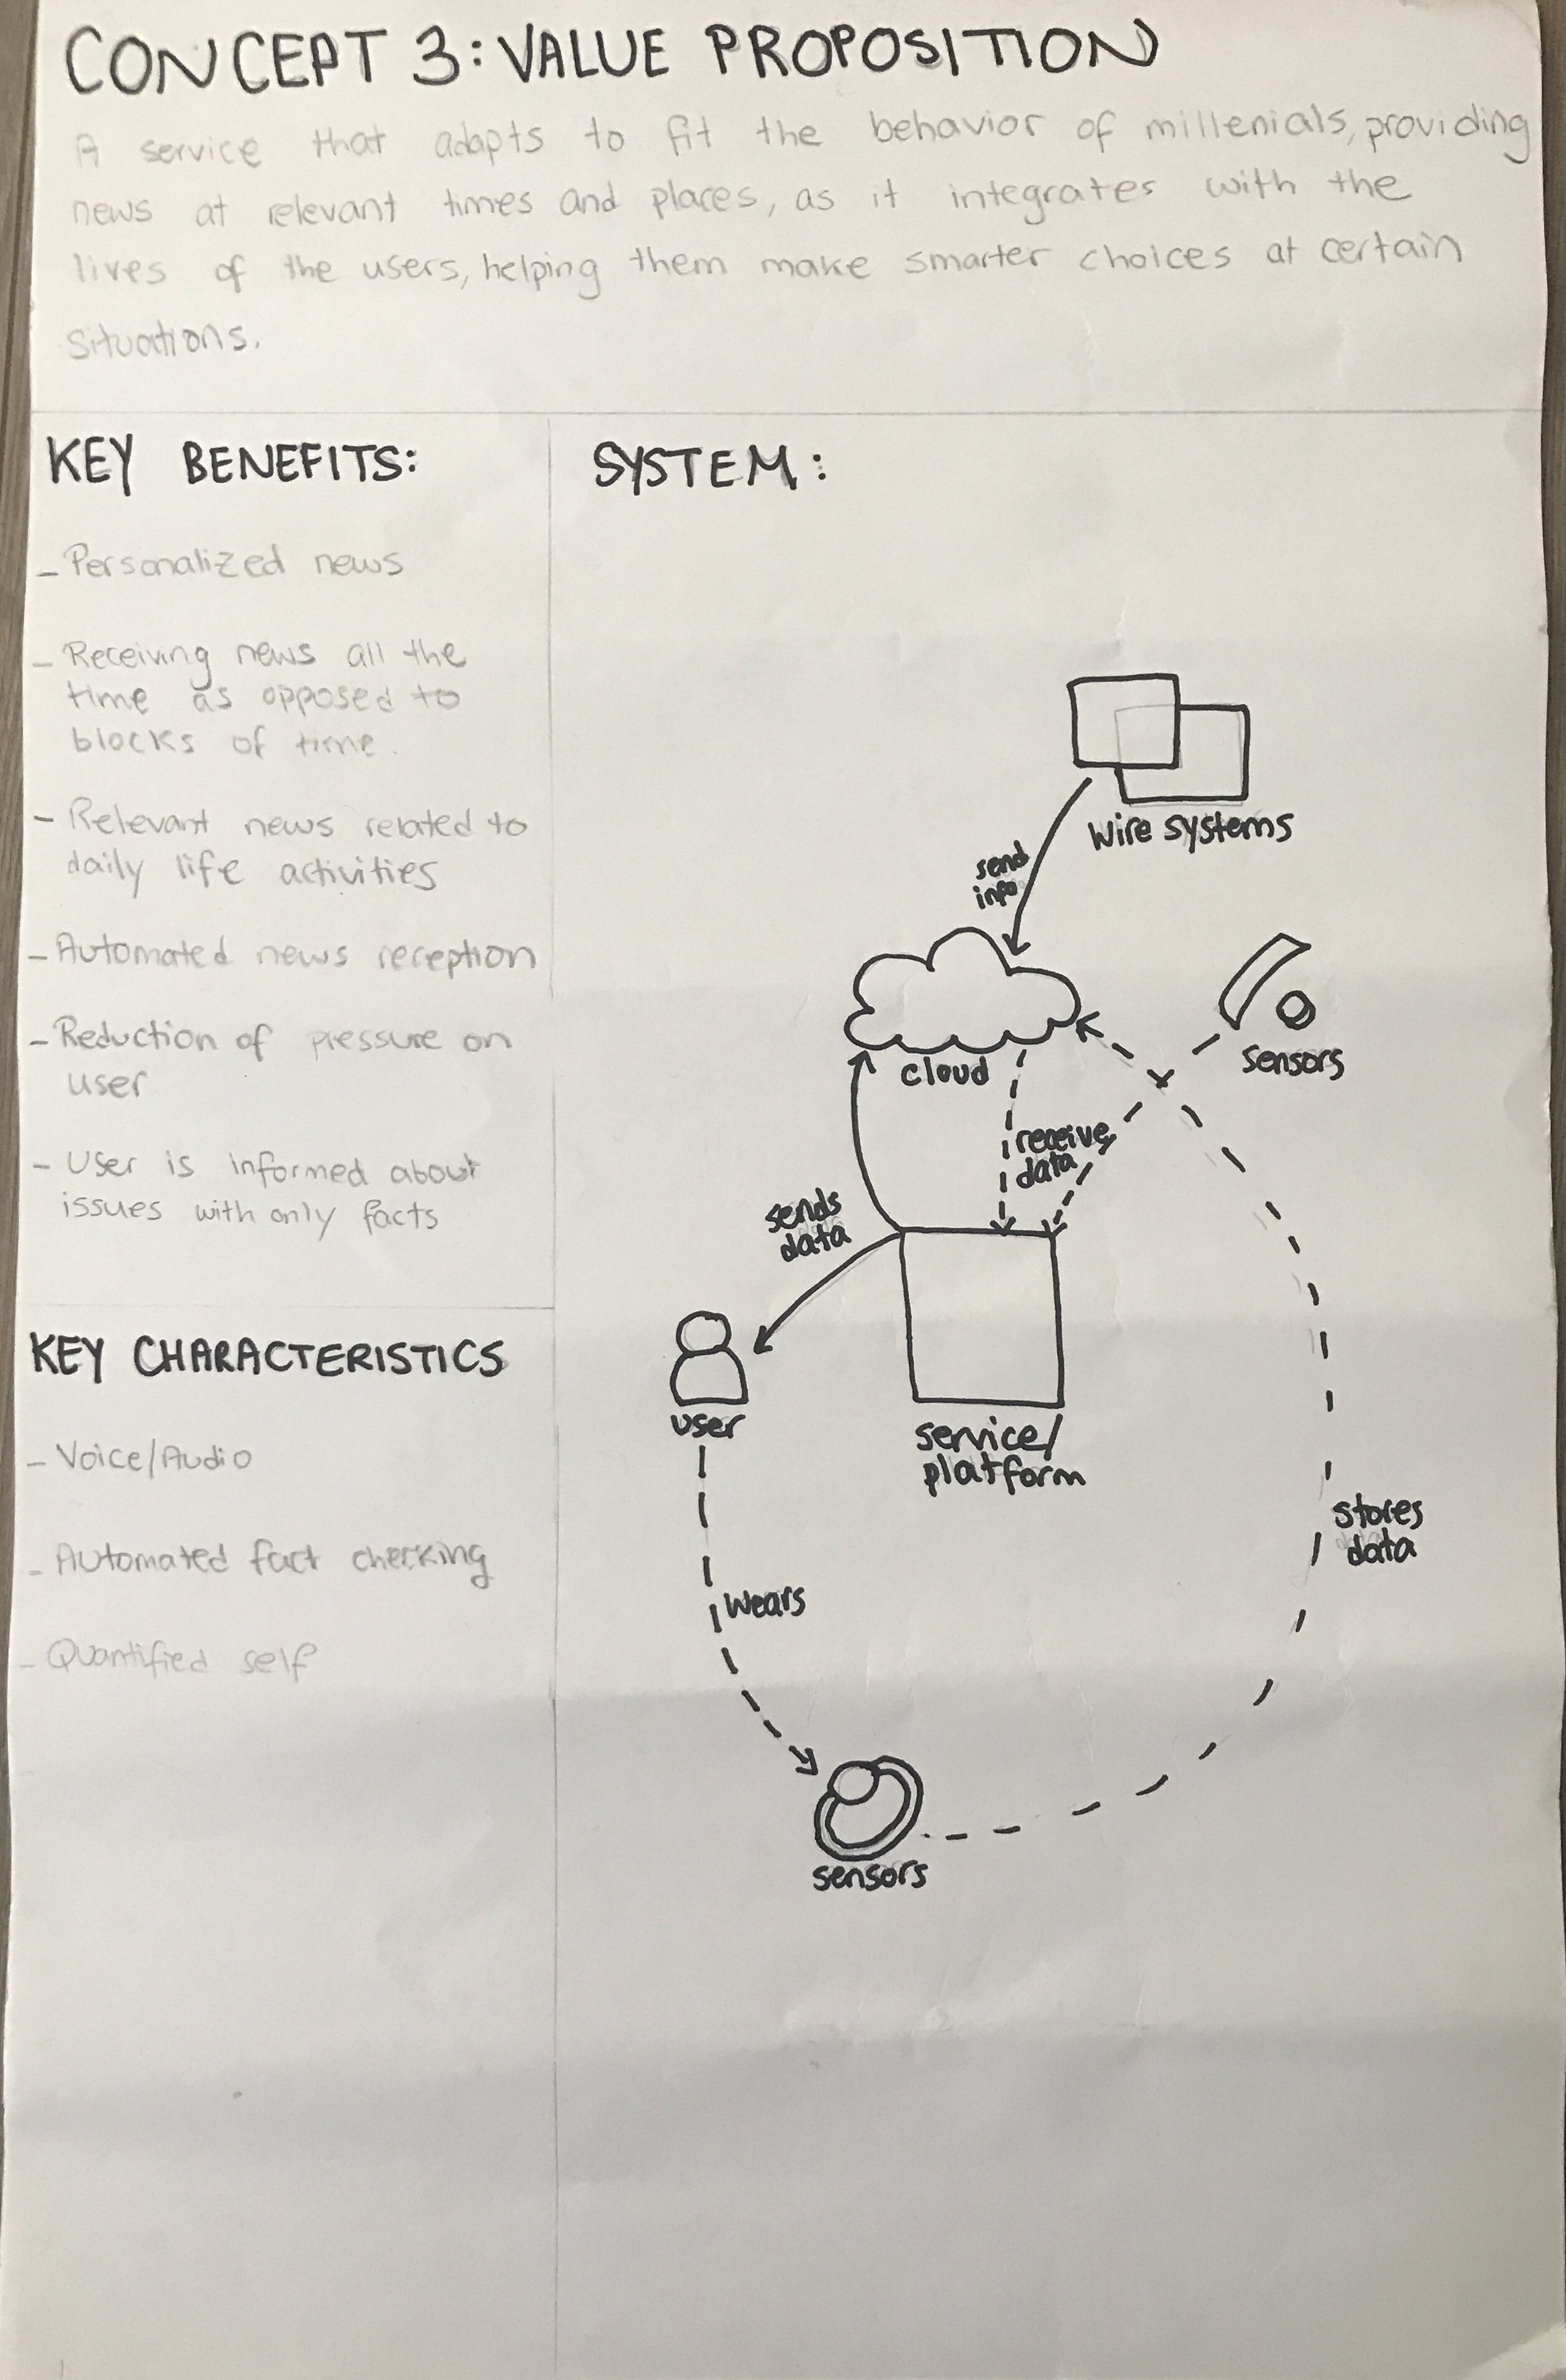 CONCEPT 3: VALUE PROPOSITION
A service that adapts to fit the behavior of millenials, providing
news at relevant times and places, as it integrates with the
lives of the users, helping them make smarter choices at certain
situations.
KEY BENEFITS:
- Personalized news
- Receiving news all the
time as opposed to
blocks of time.
- Relevant news related to
daily life activities
- Automated news reception
- Reduction of pressure on
user
- User is informed about
issues with only facts
KEY CHARACTERISTICS
- Voice/Audio
- Automated fact checking
- Quantified self
SYSTEM:
Wire systems
send
info
cloud
sensors
receive
data
sends
data
user
service/
platform
stores
data
Wears
sensors